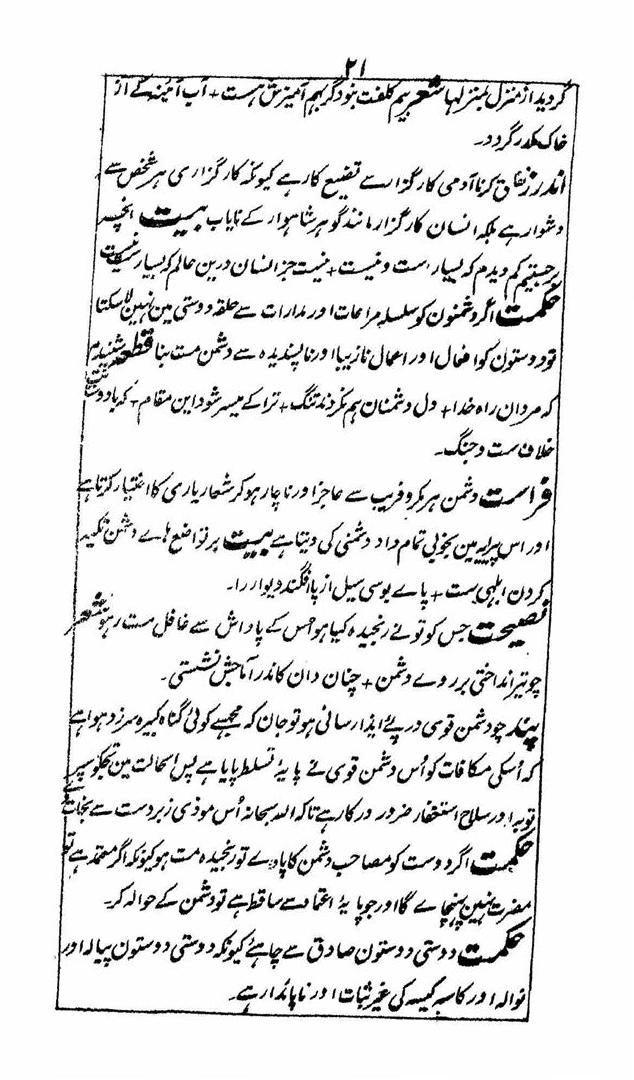 ۲۱
گردید از منزل بمنزلہا شعر بیم کلفت بنود گر بہم آمیزش ہست + آب آئینہ کے از
خاک مکدر گردد۔
اندرز نفاق کرنا آدمی کار گزار سے تضیع کار ہے کیونکہ کار گزاری ہر شخص سے
دشوار ہے بلکہ انسان کار گزار مانند گوہر شاہوار کے نایاب بیت انچہ
برجستیم کم دیدم کہ بسیار است و نیست + نیست جز انسان درین عالم کہ بسیارست نیست
حکمت اگر دشمنون کو سلسلہ مراعات اور مدارات سے حلقہ دوستی مین نہین لا سکتا
تو دوستون کو افعال اور اعمال نازیبا اور ناپسندیدہ سے دشمن مت بنا قطعہ شنیدم
کہ مردان راہ خدا + دل دشمنان ہم نکردند تنگ + ترا کے میسر شود این مقام + کہ با دوستانت
خلافست و جنگ۔
فراست دشمن ہر مکر و فریب سے عاجز اور ناچار ہو کر شعار یاری کا اختیار کرتا ہے
اور اس پیرایہ مین بخوبی تمام داد دشمنی کی دیتا ہے بیت بر تواضع ہاے دشمن تکیہ
کردن ابلہی ست + پاے بوسی سیل از پا افگند دیوار را۔
نصیحت جس کو تو نے رنجیدہ کیا ہو اس کے پاداش سے غافل مت رہو شعر
چو تیر انداختی بر روے دشمن + چنان دان کاندر آماجش نشستی۔
پند جو دشمن قوی درپے ایذا رسانی ہو تو جان کہ مجھسے کوئی گناہ کبیرہ سرزد ہوا ہے
کہ اُسکی مکافات کو اُس دشمن قوی نے پایۂ تسلط پایا ہے پس اسحالت مین تجکو سپر
توبہ اور سلاح استغفار ضرور درکار ہے تاکہ اللہ سبحانہ اُس موذی زبردست سے نجات دے
حکمت اگر دوست کو مصاحب دشمن کا پاوے تو رنجیدہ مت ہو کیونکہ اگر معتمد ہے تو
مضرت نہین پہنچاے گا اور جو پایۂ اعتماد سے ساقط ہے تو دشمن کے حوالہ کر۔
حکمت دوستی دوستون صادق سے چاہئے کیونکہ دوستی دوستون پیالہ اور
نوالہ اور کاسہ کیسہ کی غیر ثبات اور ناپائدار ہے۔